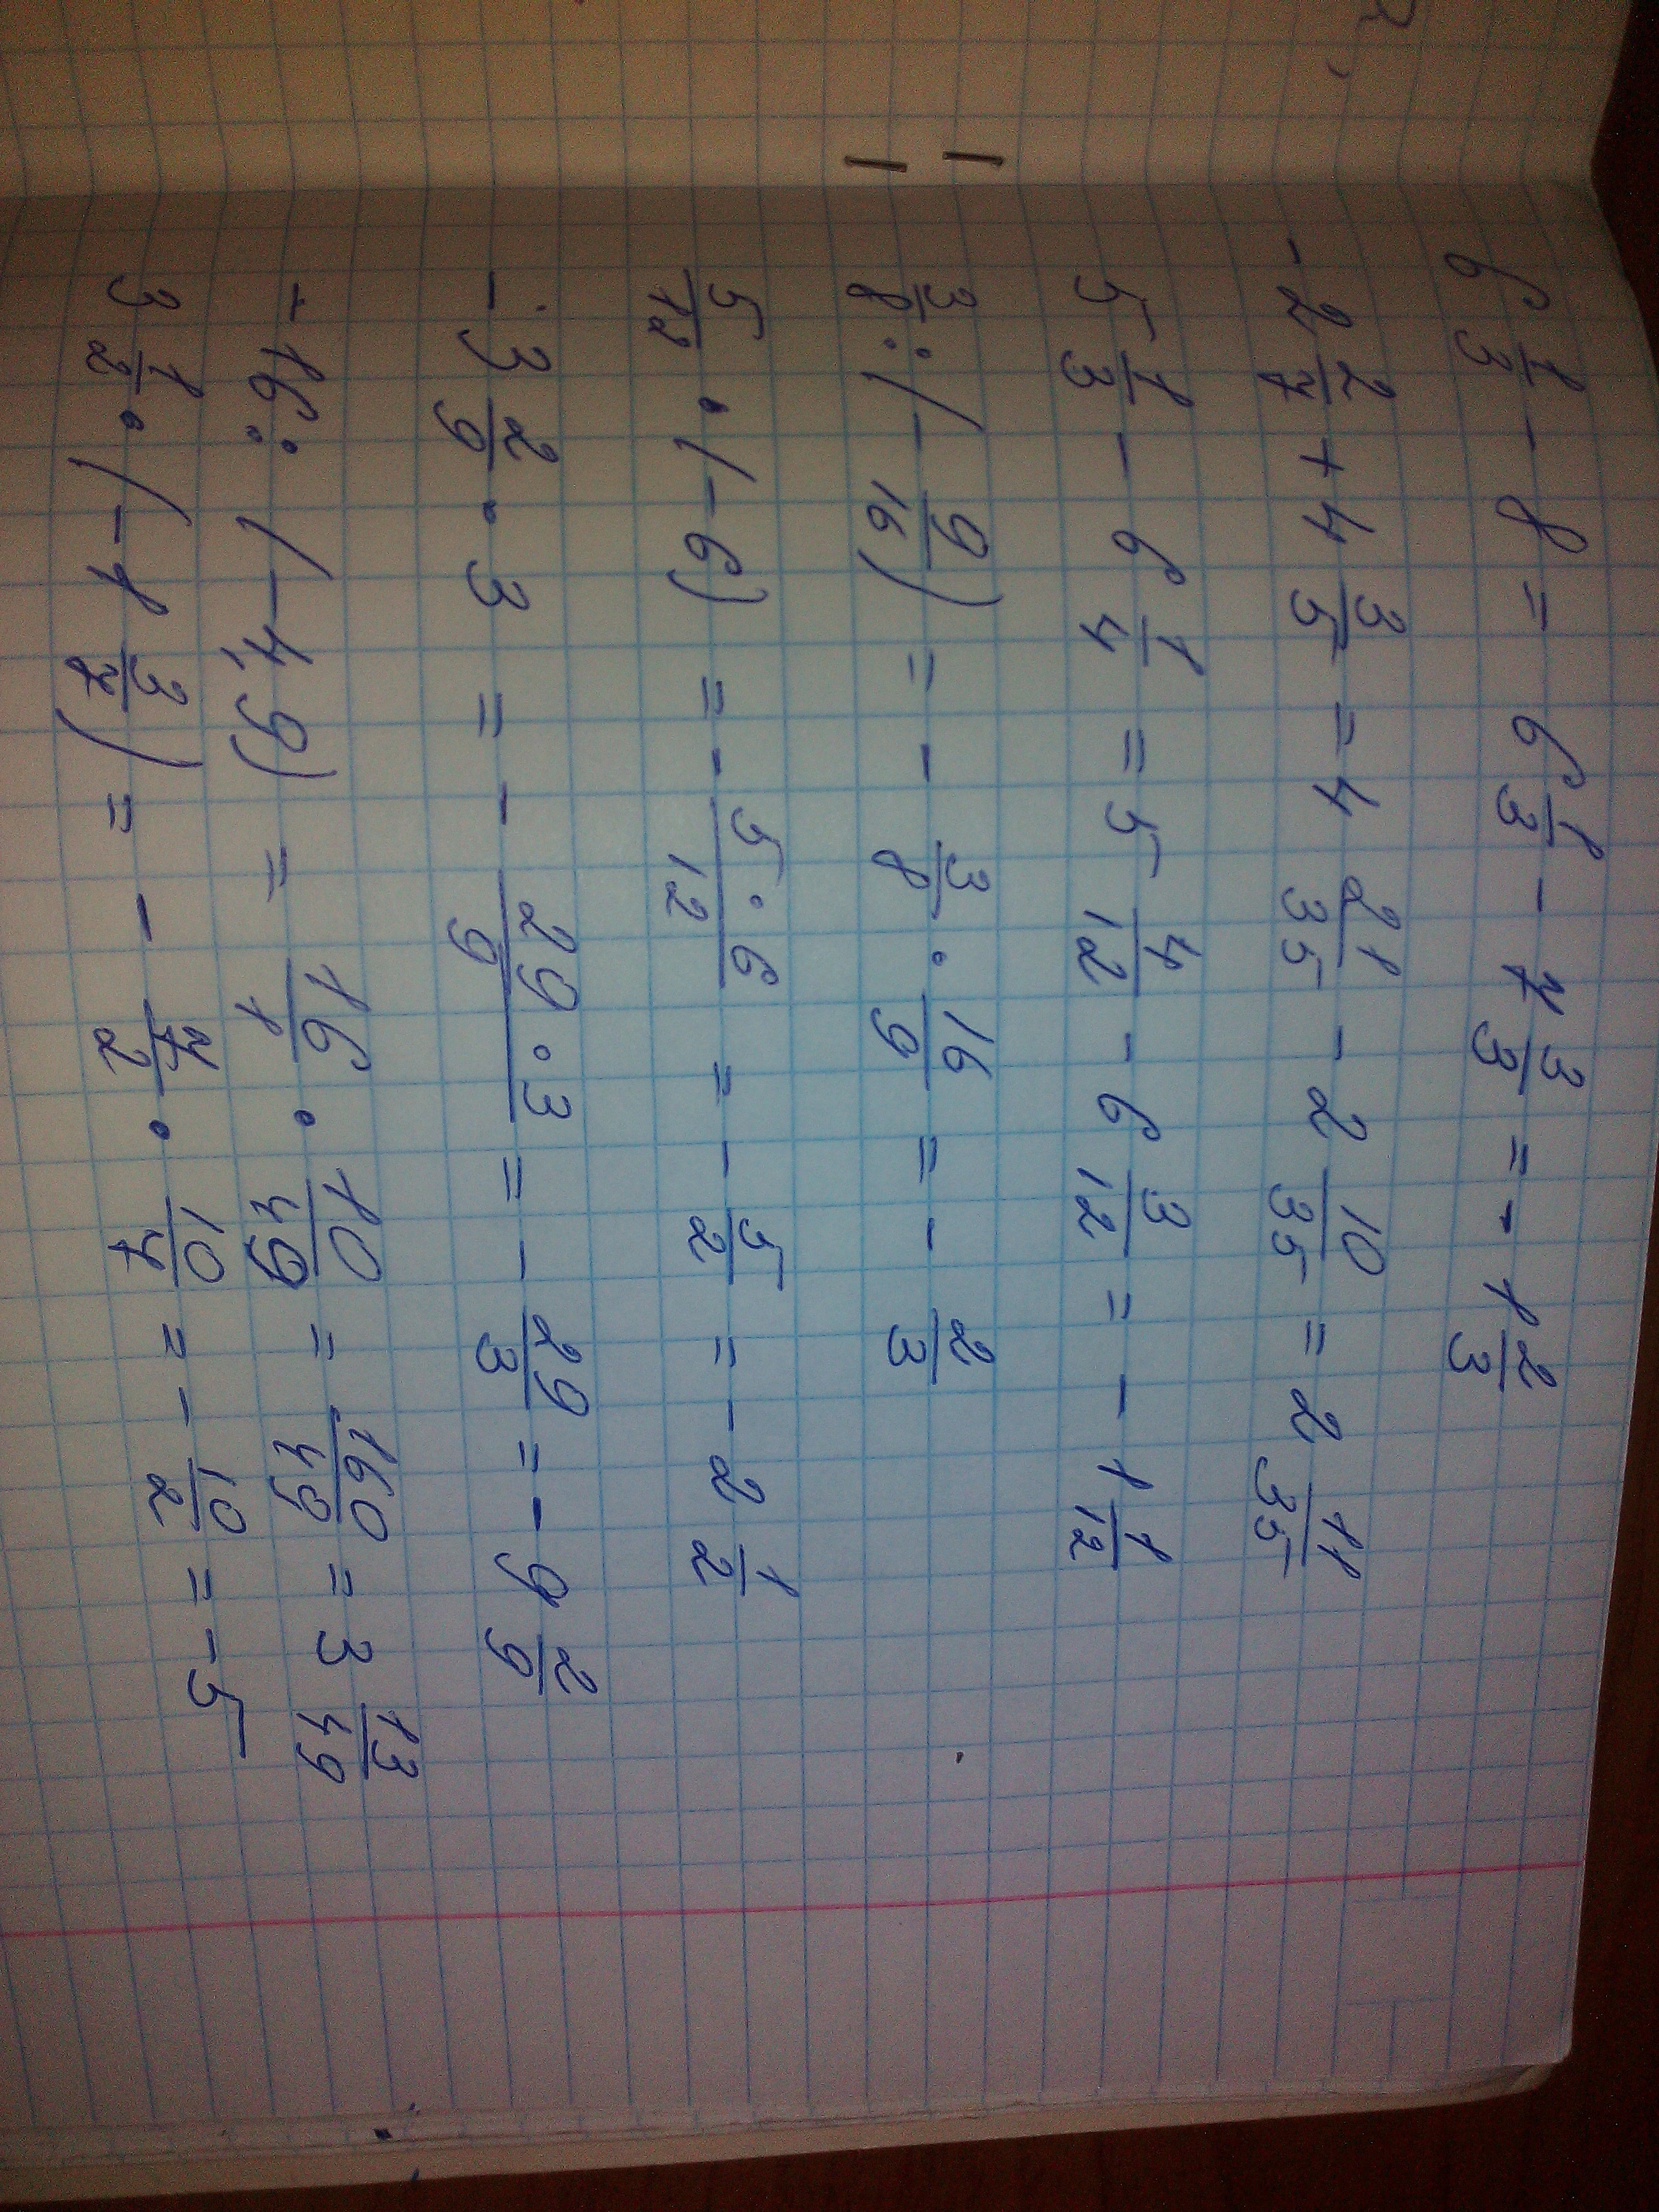 6 1/3 - 8 = 6 1/3 - 7 3/3 = - 1 2/3
- 2 2/7 + 4 3/5 = 4 21/35 - 2 10/35 = 2 11/35
5 1/3 - 6 1/4 = 5 4/12 - 6 3/12 = - 1 1/12
3/8 : (- 9/16) = - 3/8 · 16/9 = - 2/3
5/12 · (-6) = - 5·6/12 = - 5/2 = - 2 1/2
- 3 2/9 · 3 = - 29·3/9 = - 29/3 = - 9 2/9
- 16 : (-4,9) = 16/1 · 10/49 = 160/49 = 3 13/49
3 1/2 · (-1 3/7) = - 7/2 · 10/7 = - 10/2 = -5